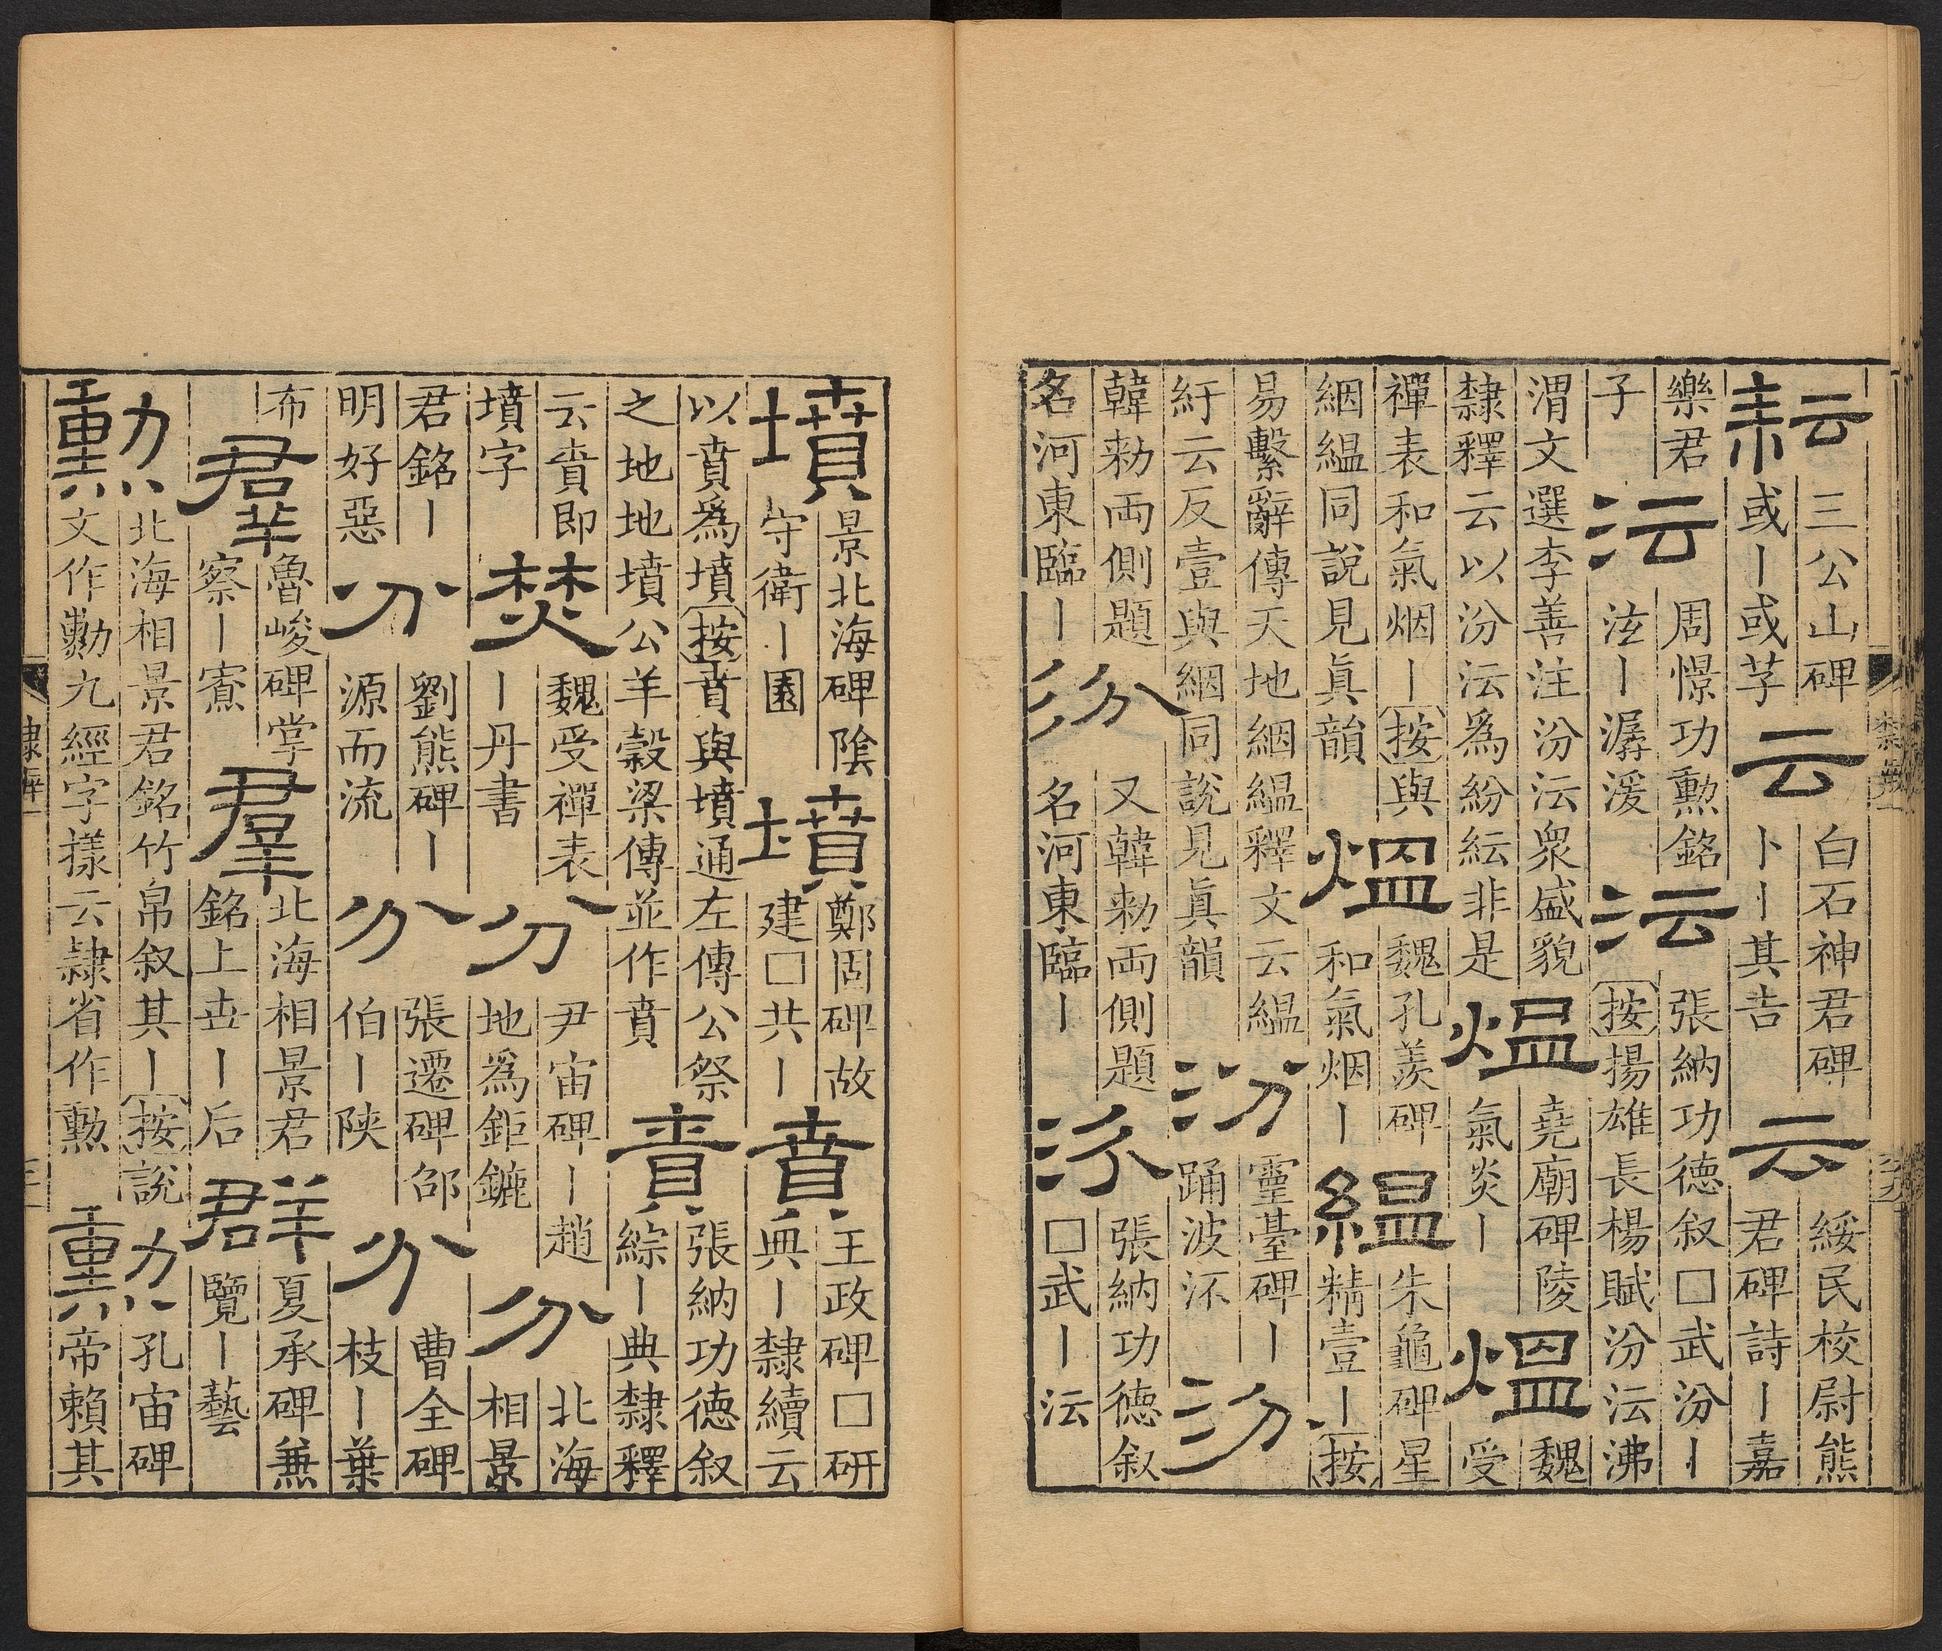 耘
三公山碑
或ー或芓
云
白石神君碑
卜ー其吉
云
綏民校尉熊
君碑詩ー嘉
樂君
子
沄
周憬功勲銘
泫ー潺湲
沄
張納功德叙□武汾ー
按揚雄長楊賦汾沄沸
渭文選李善注汾沄衆盛貌
隸釋云以汾沄為紛紜非是
煴
堯廟碑陵
氣炎ー
煴
魏
受
禪表和氣烟ー按與
絪緼同說見眞韻
煴
魏孔羨碑
和氣烟ー
緼
朱龜碑星
精壹ー按
易繫辭傳天地絪緼釋文云緼
紆云反壹與絪同說見眞韻
汾
靈臺碑ー
踊波沠
汾
韓勑両側題
名河東臨ー
汾
又韓勑両側題
名河東臨ー
汾
張納功德叙
□武ー沄
墳
景北海碑陰
守衛ー園
墳
鄭固碑故
建□共ー
賁
王政碑□研
典ー隸續云
以賁爲墳按賁與墳通左傳公祭
之地地墳公羊穀梁傳並作賁
賁
張納功德叙
綜ー典隸釋
云賁即
墳字
焚
魏受禪表
ー丹書
分
尹宙碑ー趙
地爲鉅鏕
分
北海
相景
君銘ー
明好惡
分
劉熊碑ー
源而流
分
張遷碑邵
伯ー陝
分
曹全碑
枝ー葉
布
羣
魯峻碑掌
察ー寮
羣
北海相景君
銘上世ー后
群
夏承碑兼
覽ー藝
勲
北海相景君銘竹帛叙其ー按說
文作勳九經字樣云隸省作勲
勲
孔宙碑
帝賴其